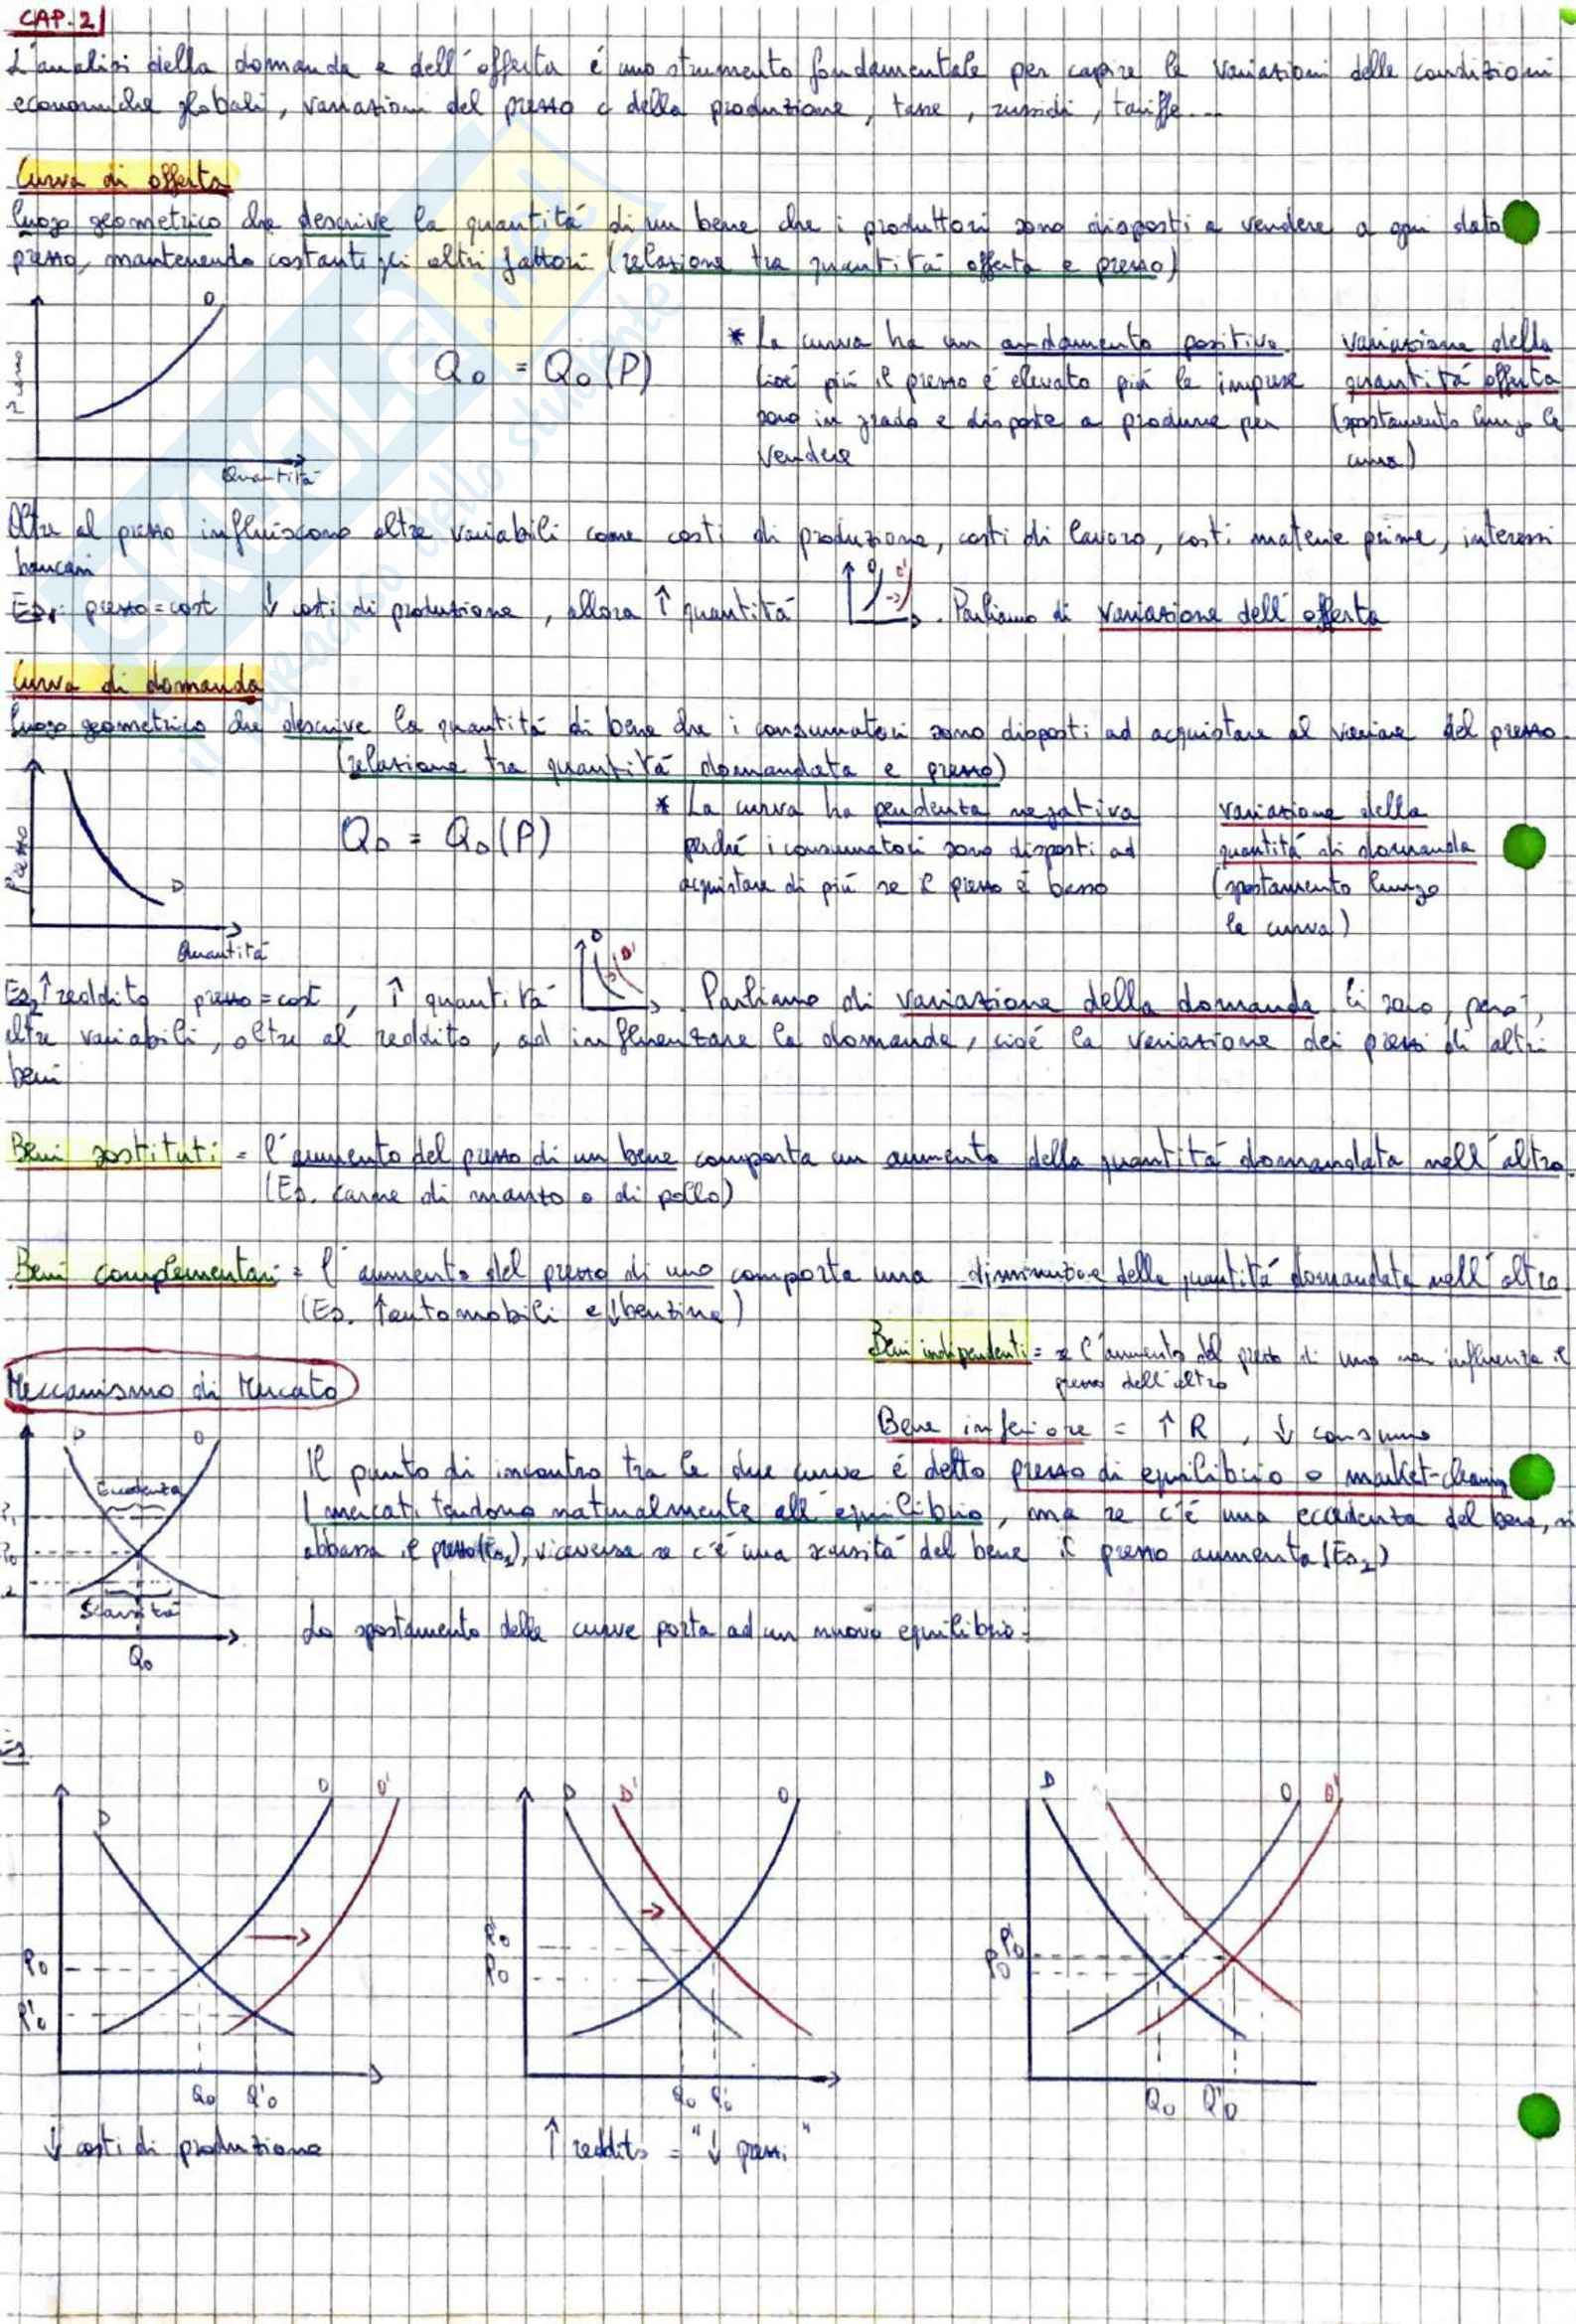 CAP. 2
L'analisi della domanda e dell'offerta é uno strumento fondamentale per capire le variazioni delle condizioni
economiche globali, variazioni del prezzo e della produzione, tasse, sussidi, tariffe...
Curva di offerta
luogo geometrico che descrive la quantitá di un bene che i produttori sono disposti a vendere a ogni dato
prezzo, mantenendo costanti gli altri fattori (relazione tra quantitá offerta e prezzo)
O
Prezzo
Quantitá
Qo = Qo (P)
* La curva ha un andamento positivo.
Cioé piú il prezzo é elevato piú le imprese
sono in grado e disposte a produrre per
vendere
variazione della
quantitá offerta
(spostamento lungo la
curva)
Oltre al prezzo influiscono altre variabili come costi di produzione, costi di lavoro, costi materie prime, interessi
bancari
Es1: prezzo=cost ↓ costi di produzione, allora ↑ quantitá
O O'
. Parliamo di variazione dell'offerta
Curva di domanda
luogo geometrico che descrive la quantitá di bene che i consumatori sono disposti ad acquistare al variare del prezzo.
(relazione tra quantitá domandata e prezzo)
Prezzo
D
Quantitá
QD = QD (P)
* La curva ha pendenza negativa
perché i consumatori sono disposti ad
acquistare di piú se il prezzo é basso
variazione della
quantitá di domanda
(spostamento lungo
la curva)
D D'
Es2 ↑ reddito prezzo=cost, ↑ quantitá . Parliamo di variazione della domanda. Ci sono, peró,
altre variabili, oltre al reddito, ad influenzare la domanda, cioé la variazione dei prezzi di altri
beni
Beni sostituti = l'aumento del prezzo di un bene comporta un aumento della quantitá domandata nell'altro.
(Es. carne di manzo o di pollo)
Beni complementari = l'aumento del prezzo di uno comporta una diminuzione della quantitá domandata nell'altro
(Es. ↑automobili e ↓benzina)
Beni indipendenti = se l'aumento del prezzo di uno non influenza il
prezzo dell'altro
Meccanismo di Mercato
Bene inferiore = ↑ R , ↓ consumo
D O
Eccedenza
P1
Po
2
Scarsitá
Qo
Il punto di incontro tra le due curve é detto prezzo di equilibrio o market-clearing
I mercati tendono naturalmente all'equilibrio, ma se c'é una eccedenza del bene, si
abbassa il prezzo(Es1), viceversa se c'é una scarsitá del bene il prezzo aumenta (Es2)
Lo spostamento delle curve porta ad un nuovo equilibrio:
Es
D O O'
Po
P'o
Qo Q'o
↓ costi di produzione
D D' O
P'o
Po
Qo Q'o
↑ reddito = "↓ prezzi"
D O O'
P'o
Po
Qo Q'o